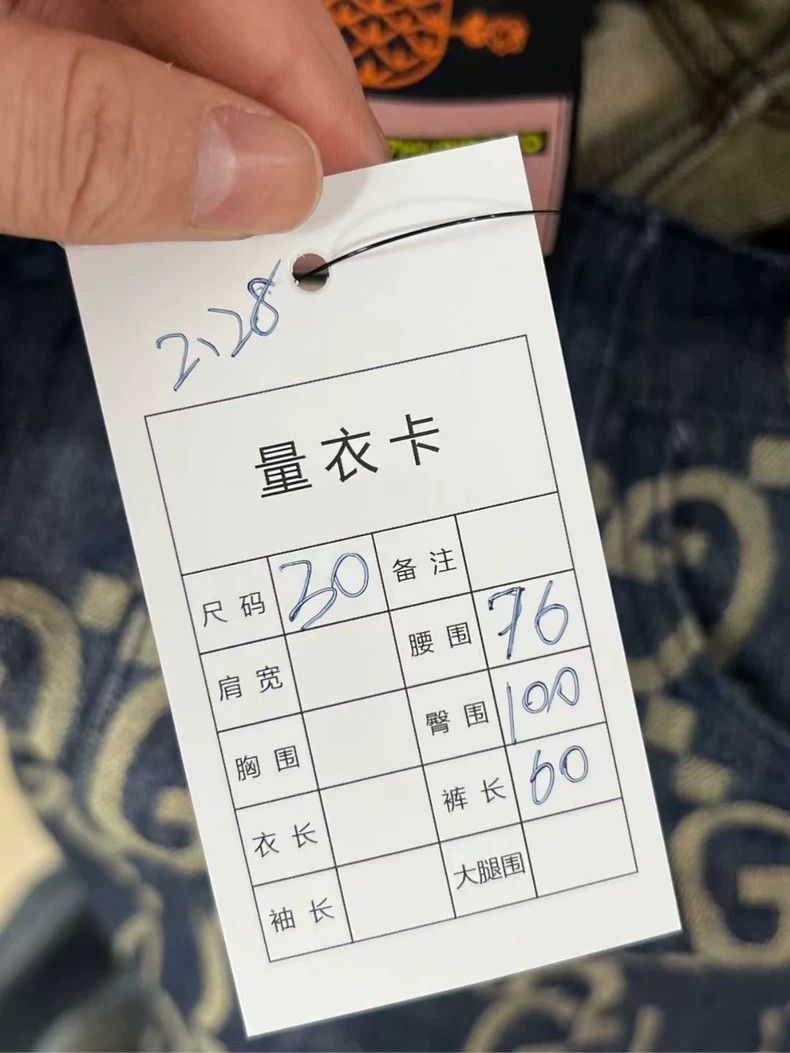 2、28
量衣卡
尺码 30 备注
肩宽 腰围 76
胸围 臀围 100
衣长 裤长 60
袖长 大腿围